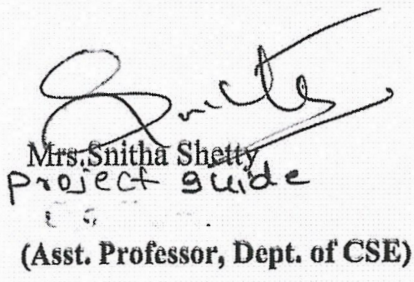 Mrs.Snitha Shetty
project guide
(Asst. Professor, Dept. of CSE)